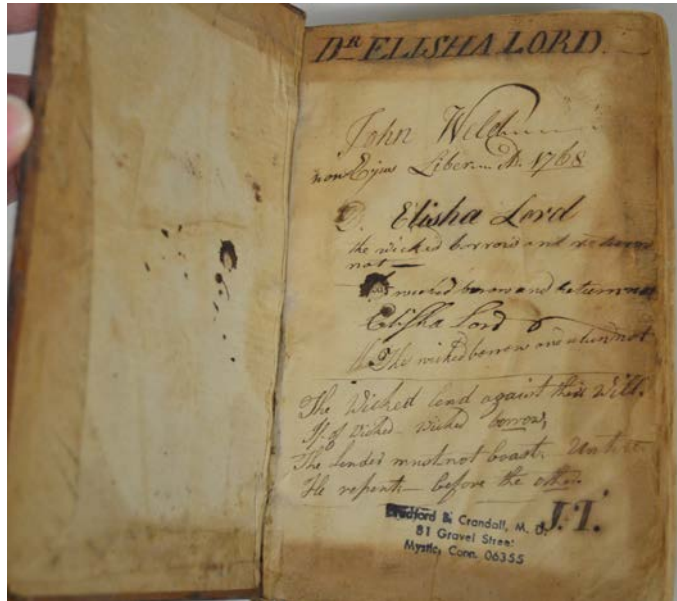 DR ELISHA LORD.
John Weld
non Ejus Liber A. 1768
D. Elisha Lord
the wicked borrow and return
not
wicked borrow and return not
Elisha Lord
The wicked borrow and return not
The Wicked lend against their Will.
If of Wicked wicked borrow,
The lender must not boast. Until
He repents before the other.
J. I.
Bradford B. Crandall, M. D.
81 Gravel Street
Mystic, Conn. 06355